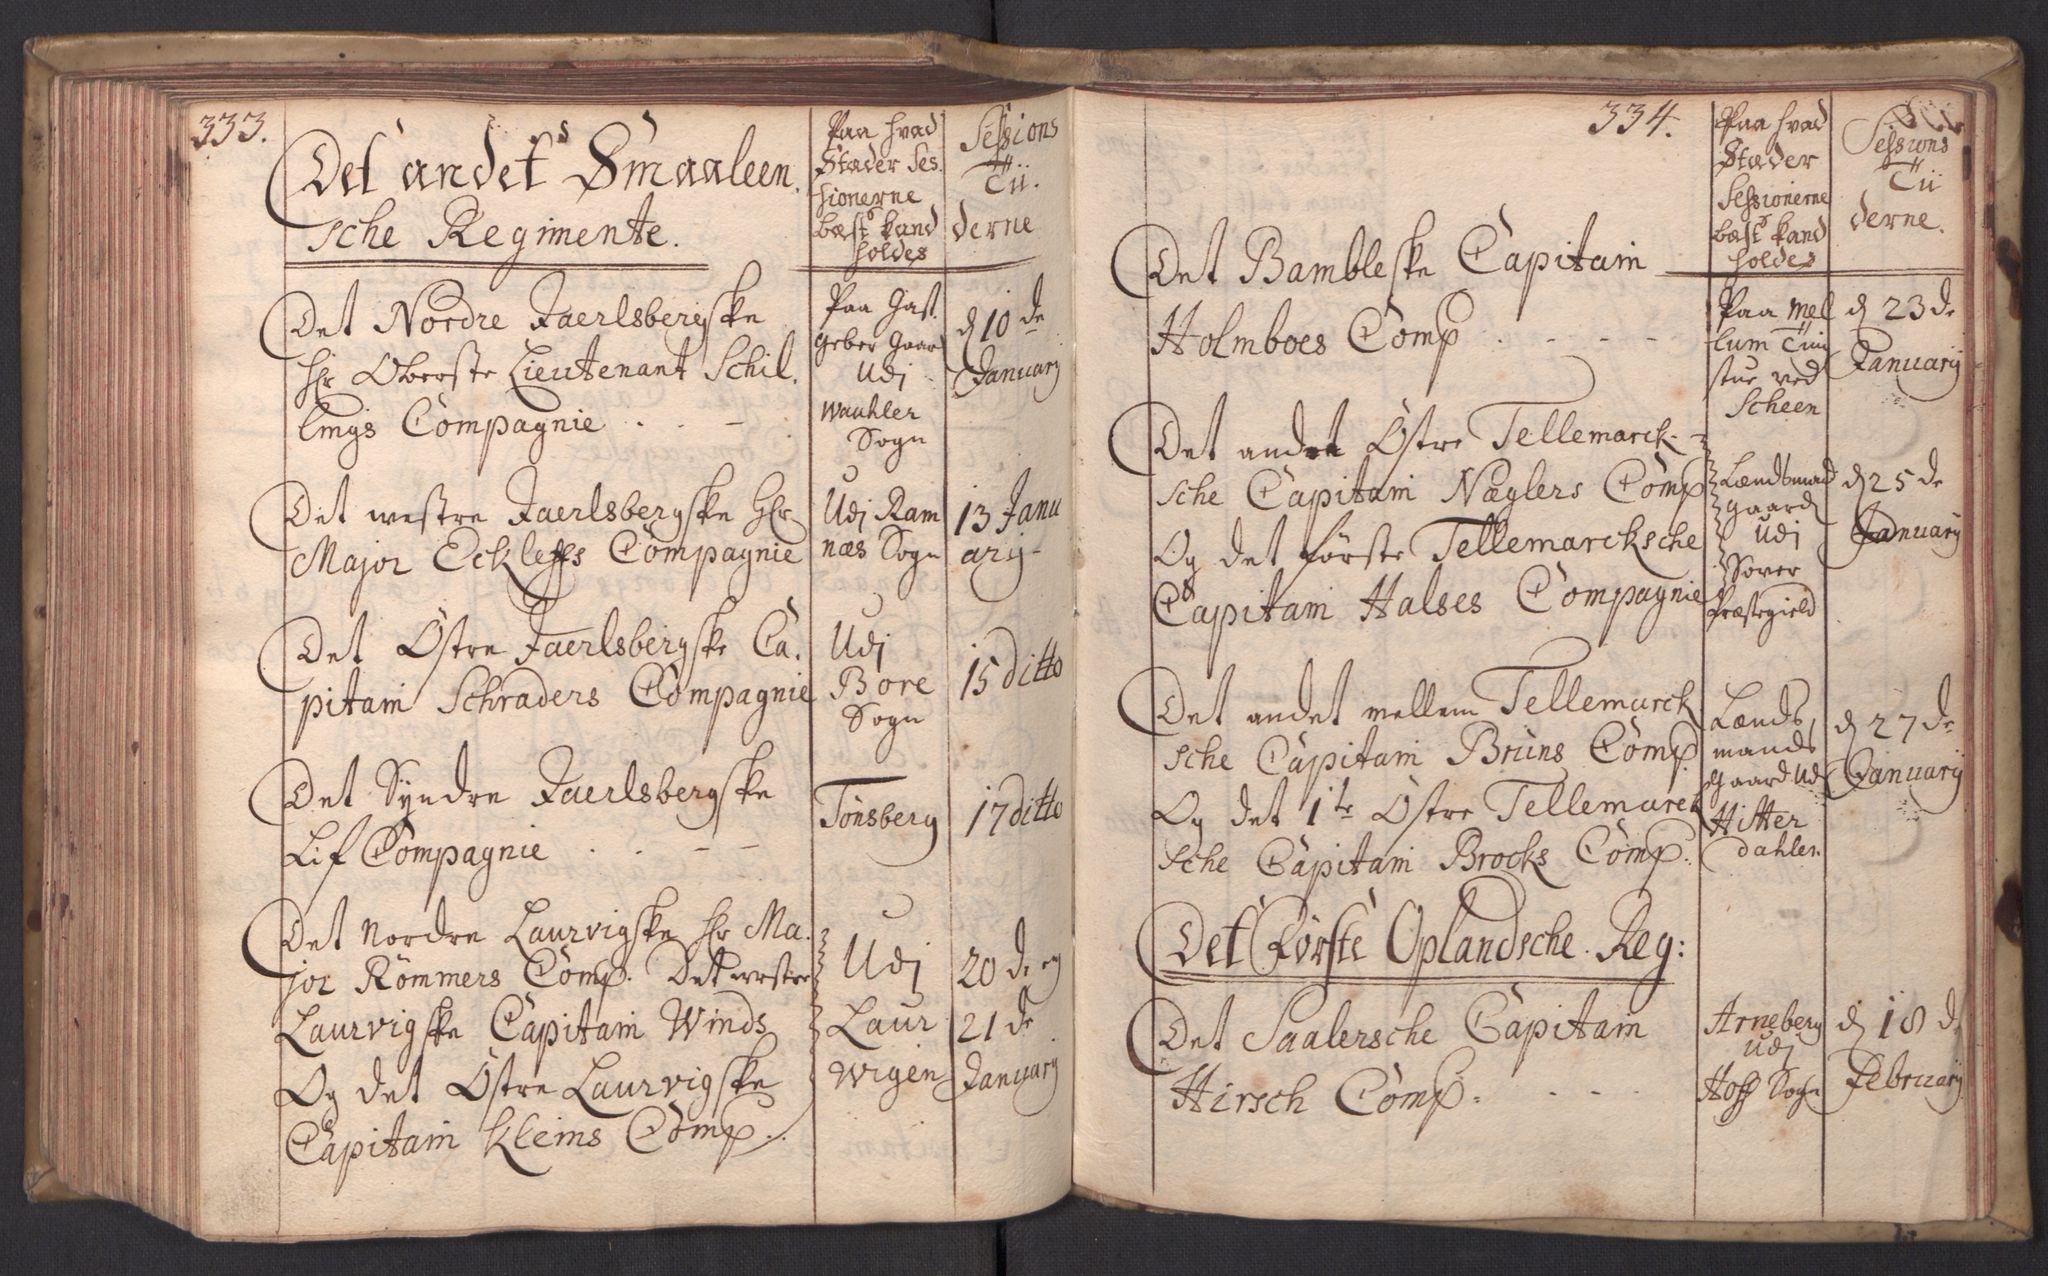 333.
Det andet Smaaleen.
sche Regimente.
Paa hvad
Stæder Ses.
sionerne
bæst kand
holdes
Sessions
Tii.
derne
Det Nordre Jaerlsbergske
Hr Oberste Lieutenant Schil.
lings Compagnie . . - -
Paa Gast.
geber Gaard
Udj
Wauhler
Sogn
d 10 de
January
Det westre Jaerlsbergske Hr
Major Eckleffs Compagnie
Udj Ram
næs Sogn
13 Janu
arij
Det Östre Jaerlsbergske Ca.
pitain Schraders Compagnie
Udj
Bore
Sogn
15 Ditto
Det Syndre Jaerlsbergske
Lif Compagnie . . - -
Tönsberg
17 ditto
Det Nordre Laurvigske Hr Ma.
jor Römmers Comp. Det westre
Laurvigske Capitain Winds
Og det Östre Laurvigske
Capitain Kleins Comp.
Udj
Laur
wigen
20 de og
21 de
January
334.
Paa hvad
Stæder
Sessionerne
bæst kand
holdes
Sessions
Tii
derne.
Det Bambleske Capitain
Holmboes Comp . - - -
Paa Mel
lum Ting
stue ved
Scheen
d 23 de
January
Det andet Östre Tellemarck-
sche Capitain Næglers Comp
Og det förste Tellemarcksche
Capitain Halses Compagnie
Lændsmand
gaard
Udj
Sover
Præstegield
d 25 de
January
Det andet mellem Tellemarck
sche Capitain Bruns Comp
Og det 1te Östre Tellemarck
sche Capitain Brocks Comp.
Lænds
mands
Gaard Udj
Hitter
dahlen
d 27 de
January
Det Förste Oplandsche Reg:
Det Saalersche Capitain
Hirsch Comp. - - -
Arneberg
Udj
Hoff Sogn
d 18 de
February